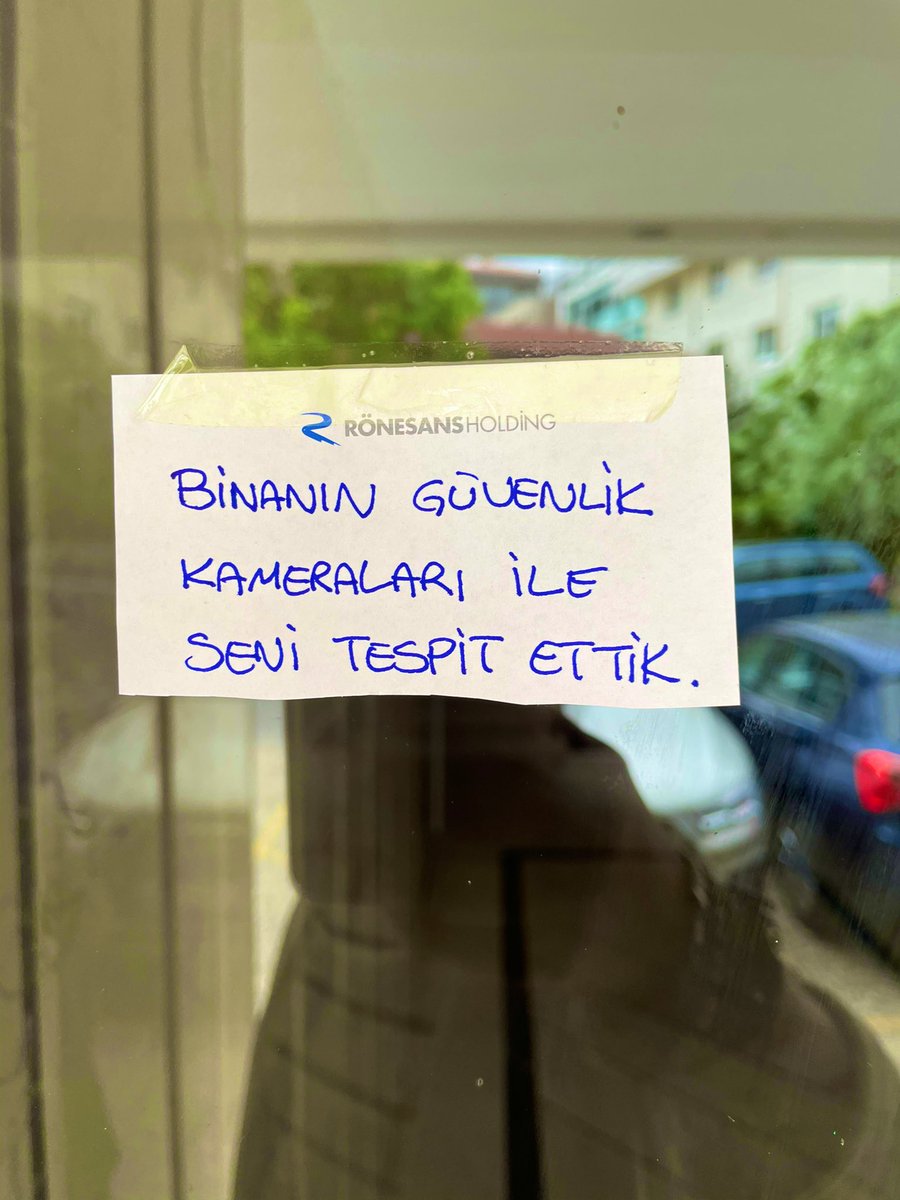 RÖNESANSHOLDİNG
BİNANIN GÜVENLİK
KAMERALARI İLE
SENİ TESPİT ETTİK.